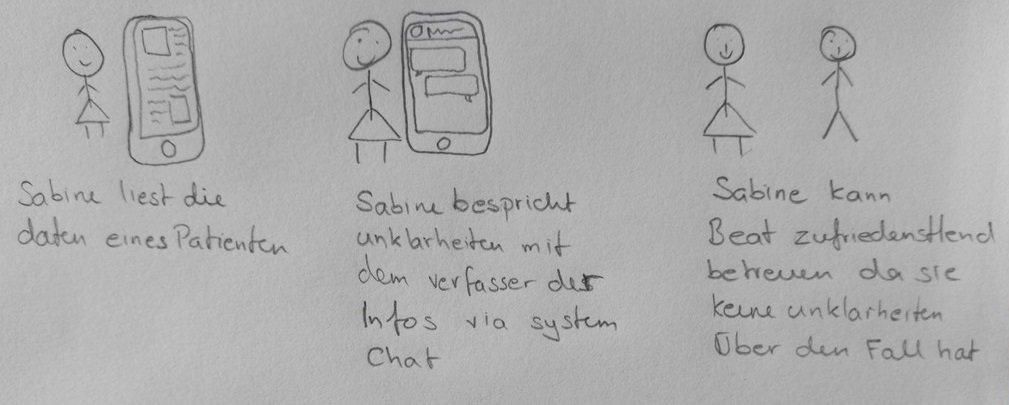 Sabine liest die
daten eines Patienten
Sabine bespricht
unklarheiten mit
dem verfasser der
Infos via system
Chat
Sabine kann
Beat zufriedensttend
betreuen da sie
keine unklarheiten
Über den Fall hat